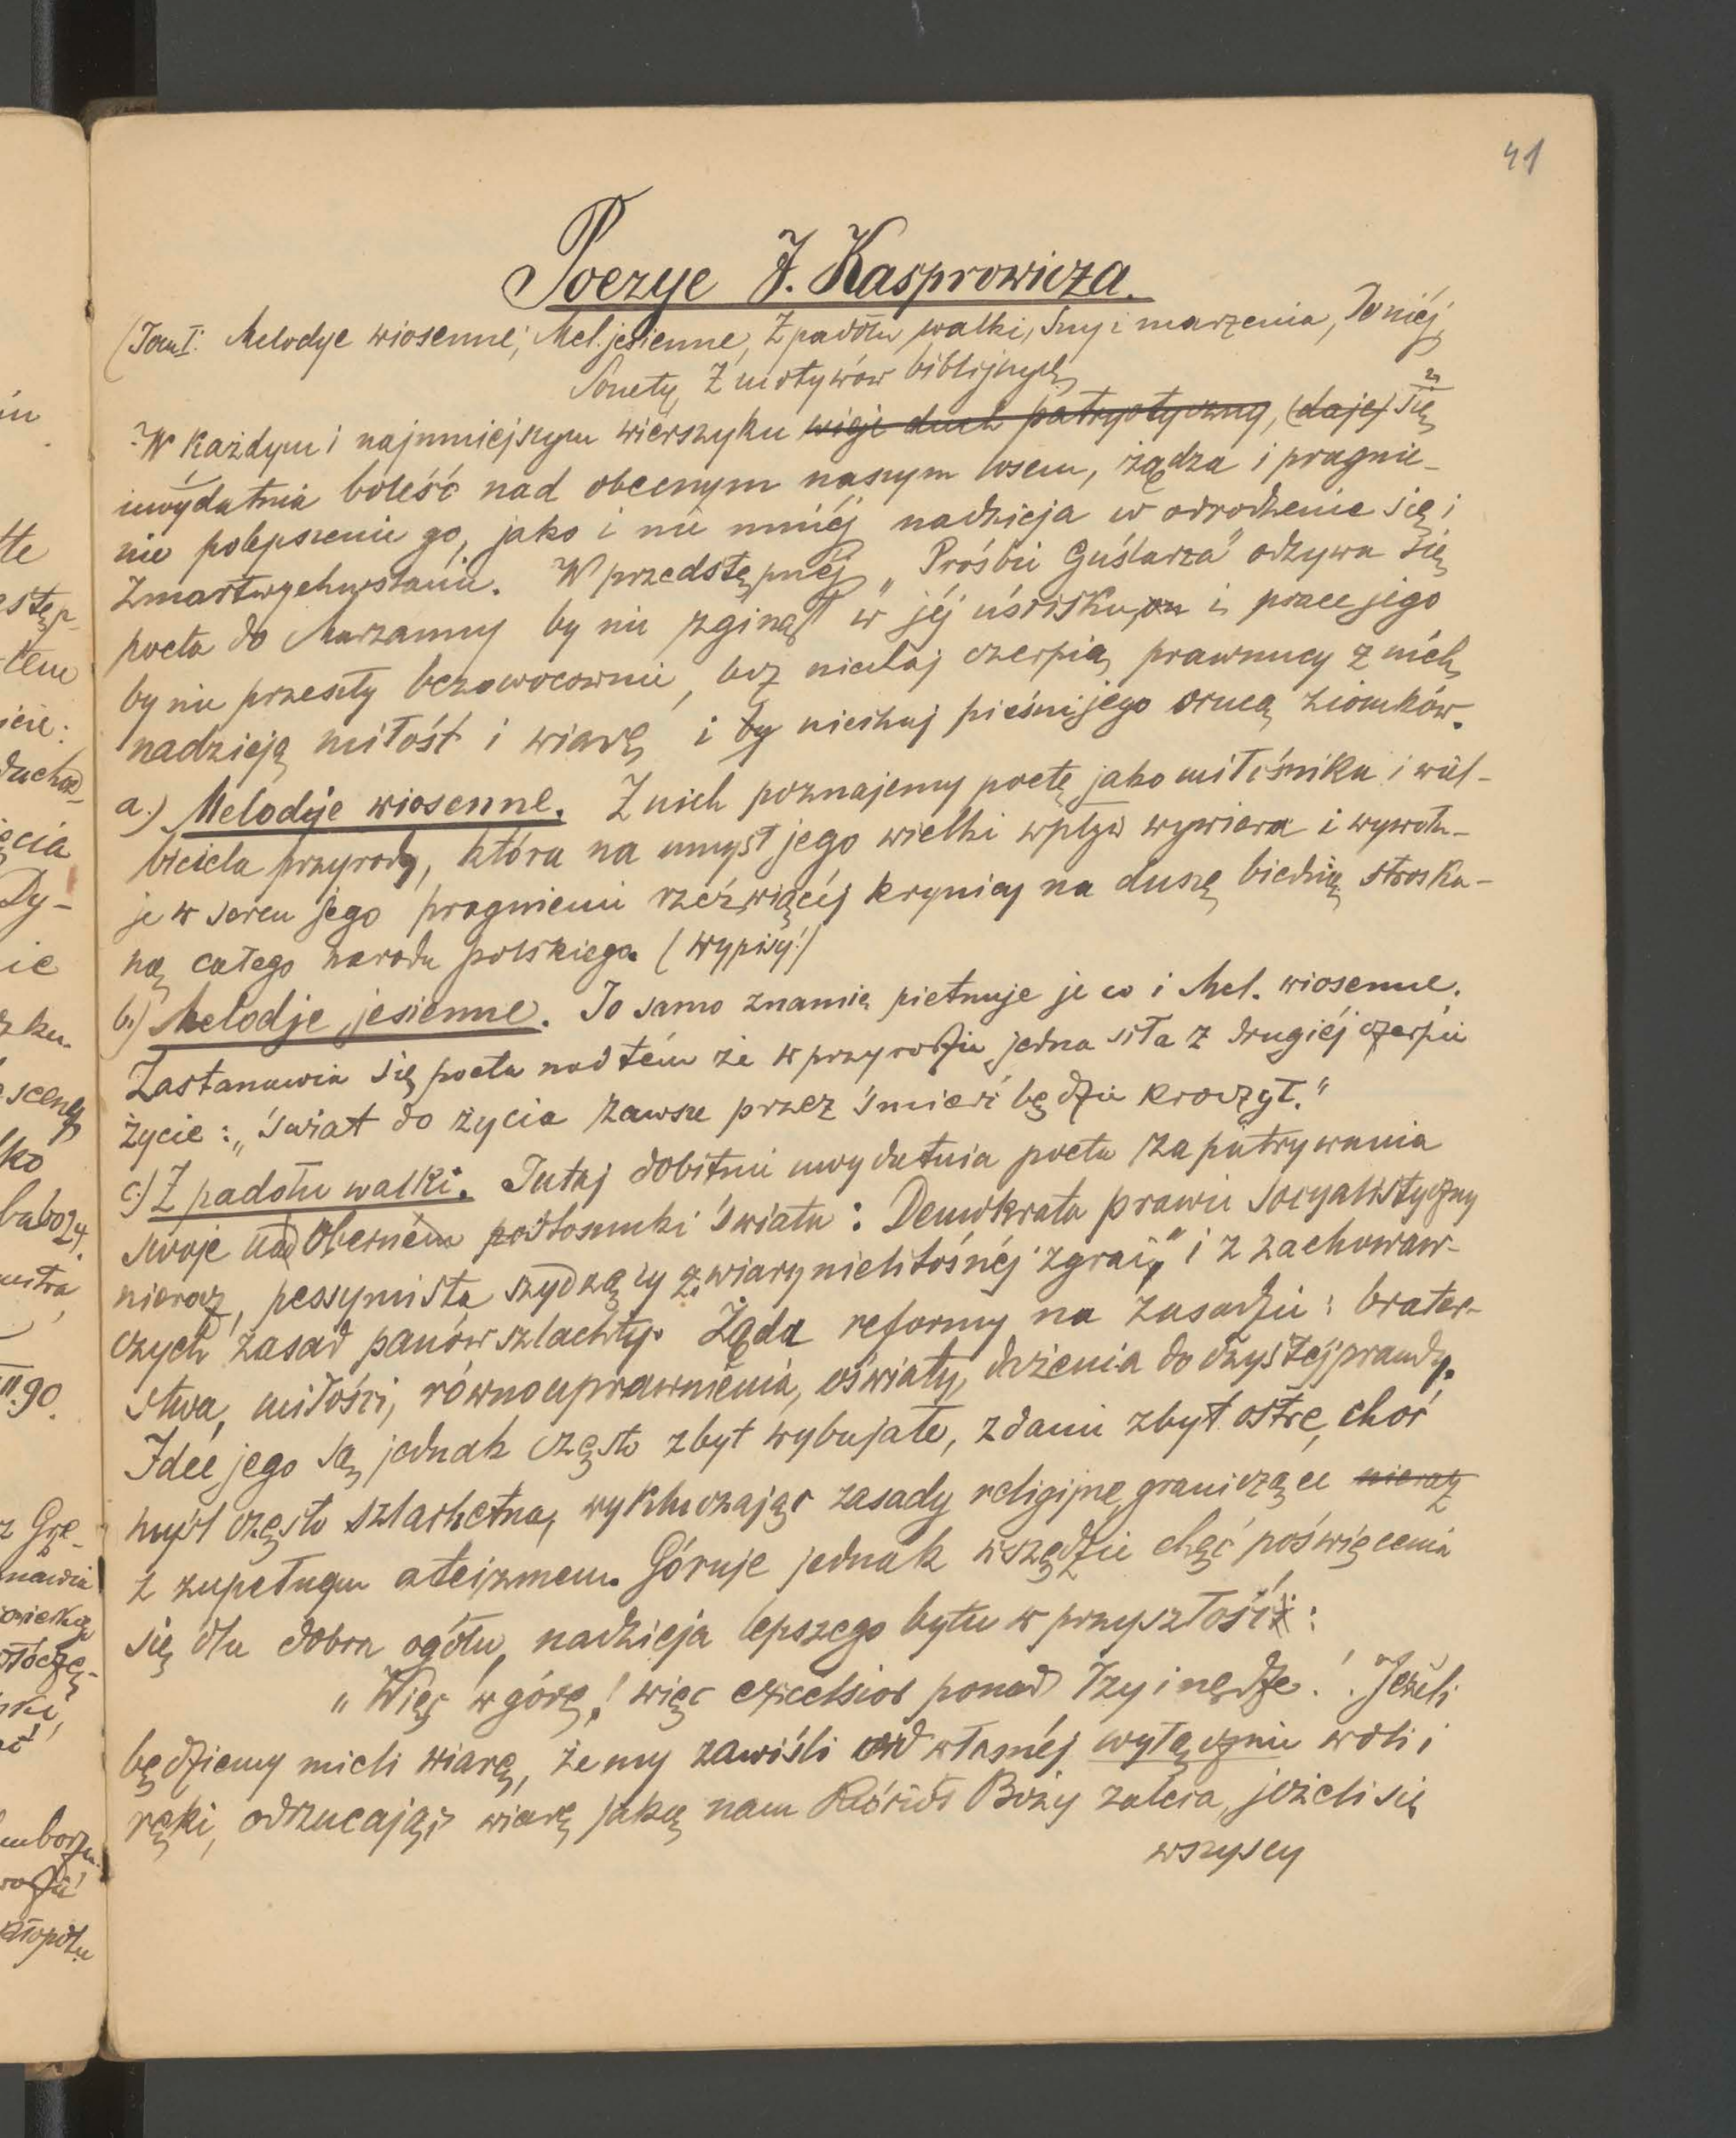 41
Poezye J. Kasprowicza.
(Tom I: Melodye wiosenne, Mel. jesienne, Z padołu walki, Sny i marzenia, Do niéj,
Sonety, Z motywów biblijnych
W każdym i najmniejszym wierszyku wieje duch patryotyczny, (daje) się
uwydatnia boleść nad obecnym naszym losem, żądza i pragnie-
nie polepszenie go, jako i nie mniéj nadzieja w odrodzenie się i
zmartwychwstanie. W przedstępnéj „Prośbie Guślarza" odzywa się
poeta do Marzanny by nie zginął w jéj uścisku, i prace jego
by nie przeszły bezowocownie, lecz niechaj czerpią prawnucy z nich
nadzieją miłość i wiarę i by niechaj pieśni jego ziomków.
a.) Melodye wiosenne. Z nich poznajemy poetę jako miłośnika i wiel-
biciela przyrody, która na umysł jego wielki wpływ wywiera i wywołu-
je w sercu jego pragnienie rzeźwiącéj krynicy na duszę biedną stroska-
ną całego narodu polskiego. (Wypisy!)
b.) Melodje jesienne. To samo znamię piętnuje je co i Mel. wiosenne.
Zastanawia się poeta nad tém że w przyrodzie jedna siła z drugiéj czerpie
życie: „świat do życia zawsze przez śmierć będzie kroczył."
c.) Z padołu walki. Tutaj dobitnie uwydatnia poeta zapatrywania
swoje nad obecném stosunki świata: Demokrata prawie socyalistyczny
nieraz, pessymista szydzący z „wiary nielitośnéj zgrai," i z zachowaw-
czych zasad panów szlachty. Żąda reformy na zasadzie: brater-
stwa, miłości, równouprawnienia, oświaty, dążenia do czystej prawdy.
Idée jego są jednak często zbyt wybujałe, zdanie zbyt ostre, choć
myśl często szlachetna, wykluczając zasady religijne, graniczące nieraz
z zupełnym ateizmem. Góruje jednak wszędzie chęć poświęcenia
się dla dobra ogółu, nadzieja lepszego bytu w przyszłości:
„Więc w górę! więc excelsior ponad łzy i nędze! Jeżeli
będziemy mieli wiarę, że my zawiśli od własnéj wyłącznie woli i
ręki, odrzucając wiarę jaką nam Kościół Boży zaleca, jeżeli się
wszyscy